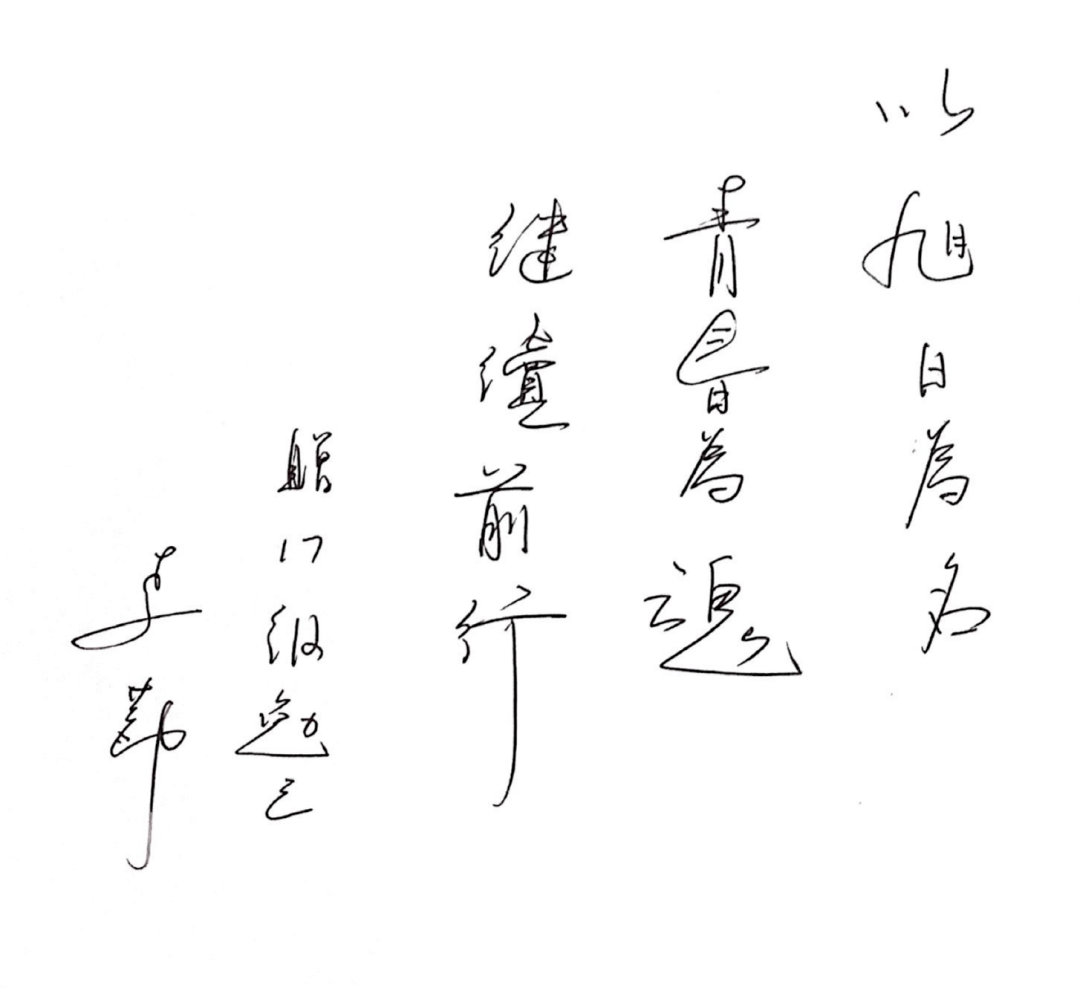 以旭日為名
青春為魂
继續前行
贈17级勉之
勤